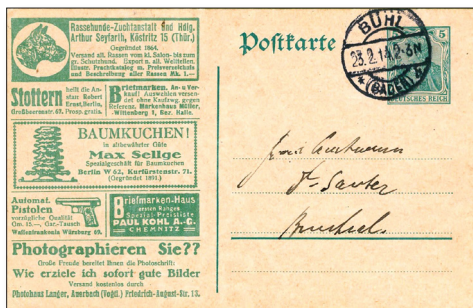 Rassehunde-Zuchtanstalt und Hdlg.
Arthur Seyfarth, Köstritz 15 (Thür.)
Gegründet 1864.
Versand all. Rassen vom kl. Salon- bis zum
gr. Schutzhund. Export n. all. Weltteilen.
Illustr. Prachtkatalog m. Preisverzeichnis
und Beschreibung aller Rassen Mk. 1.—
Stottern heilt die Anstalt Robert
Ernst, Berlin,
Großbeerenstr. 67. Prosp. gratis.
Briefmarken. An- u. Verkauf! Auswahlen versendet
ohne Kaufzwang gegen
Referenz. Markenhaus Müller,
Wittenberg 1, Bez. Halle.
BAUMKUCHEN!
in altbewährter Güte
Max Sellge
Spezialgeschäft für Baumkuchen
Berlin W 62, Kurfürstenstr. 71.
(Gegründet 1891.)
Automat.
Pistolen
vorzügliche Qualität
Waffenfrankonia Würzburg
Briefmarken-Haus
ersten Ranges
Spezial-Preisliste
PAUL KOHL A.-G.
CHEMNITZ
Photographieren Sie??
Große Freude bereitet Ihnen die Photoschrift:
Wie erziele ich sofort gute Bilder
Versand kostenlos durch
Photohaus Langer, Auerbach (Vogtl.) Friedrich-August-Str. 13.
Postkarte
BÜHL
23.2.14.2-3N
(BADEN)
5
DEUTSCHES REICH